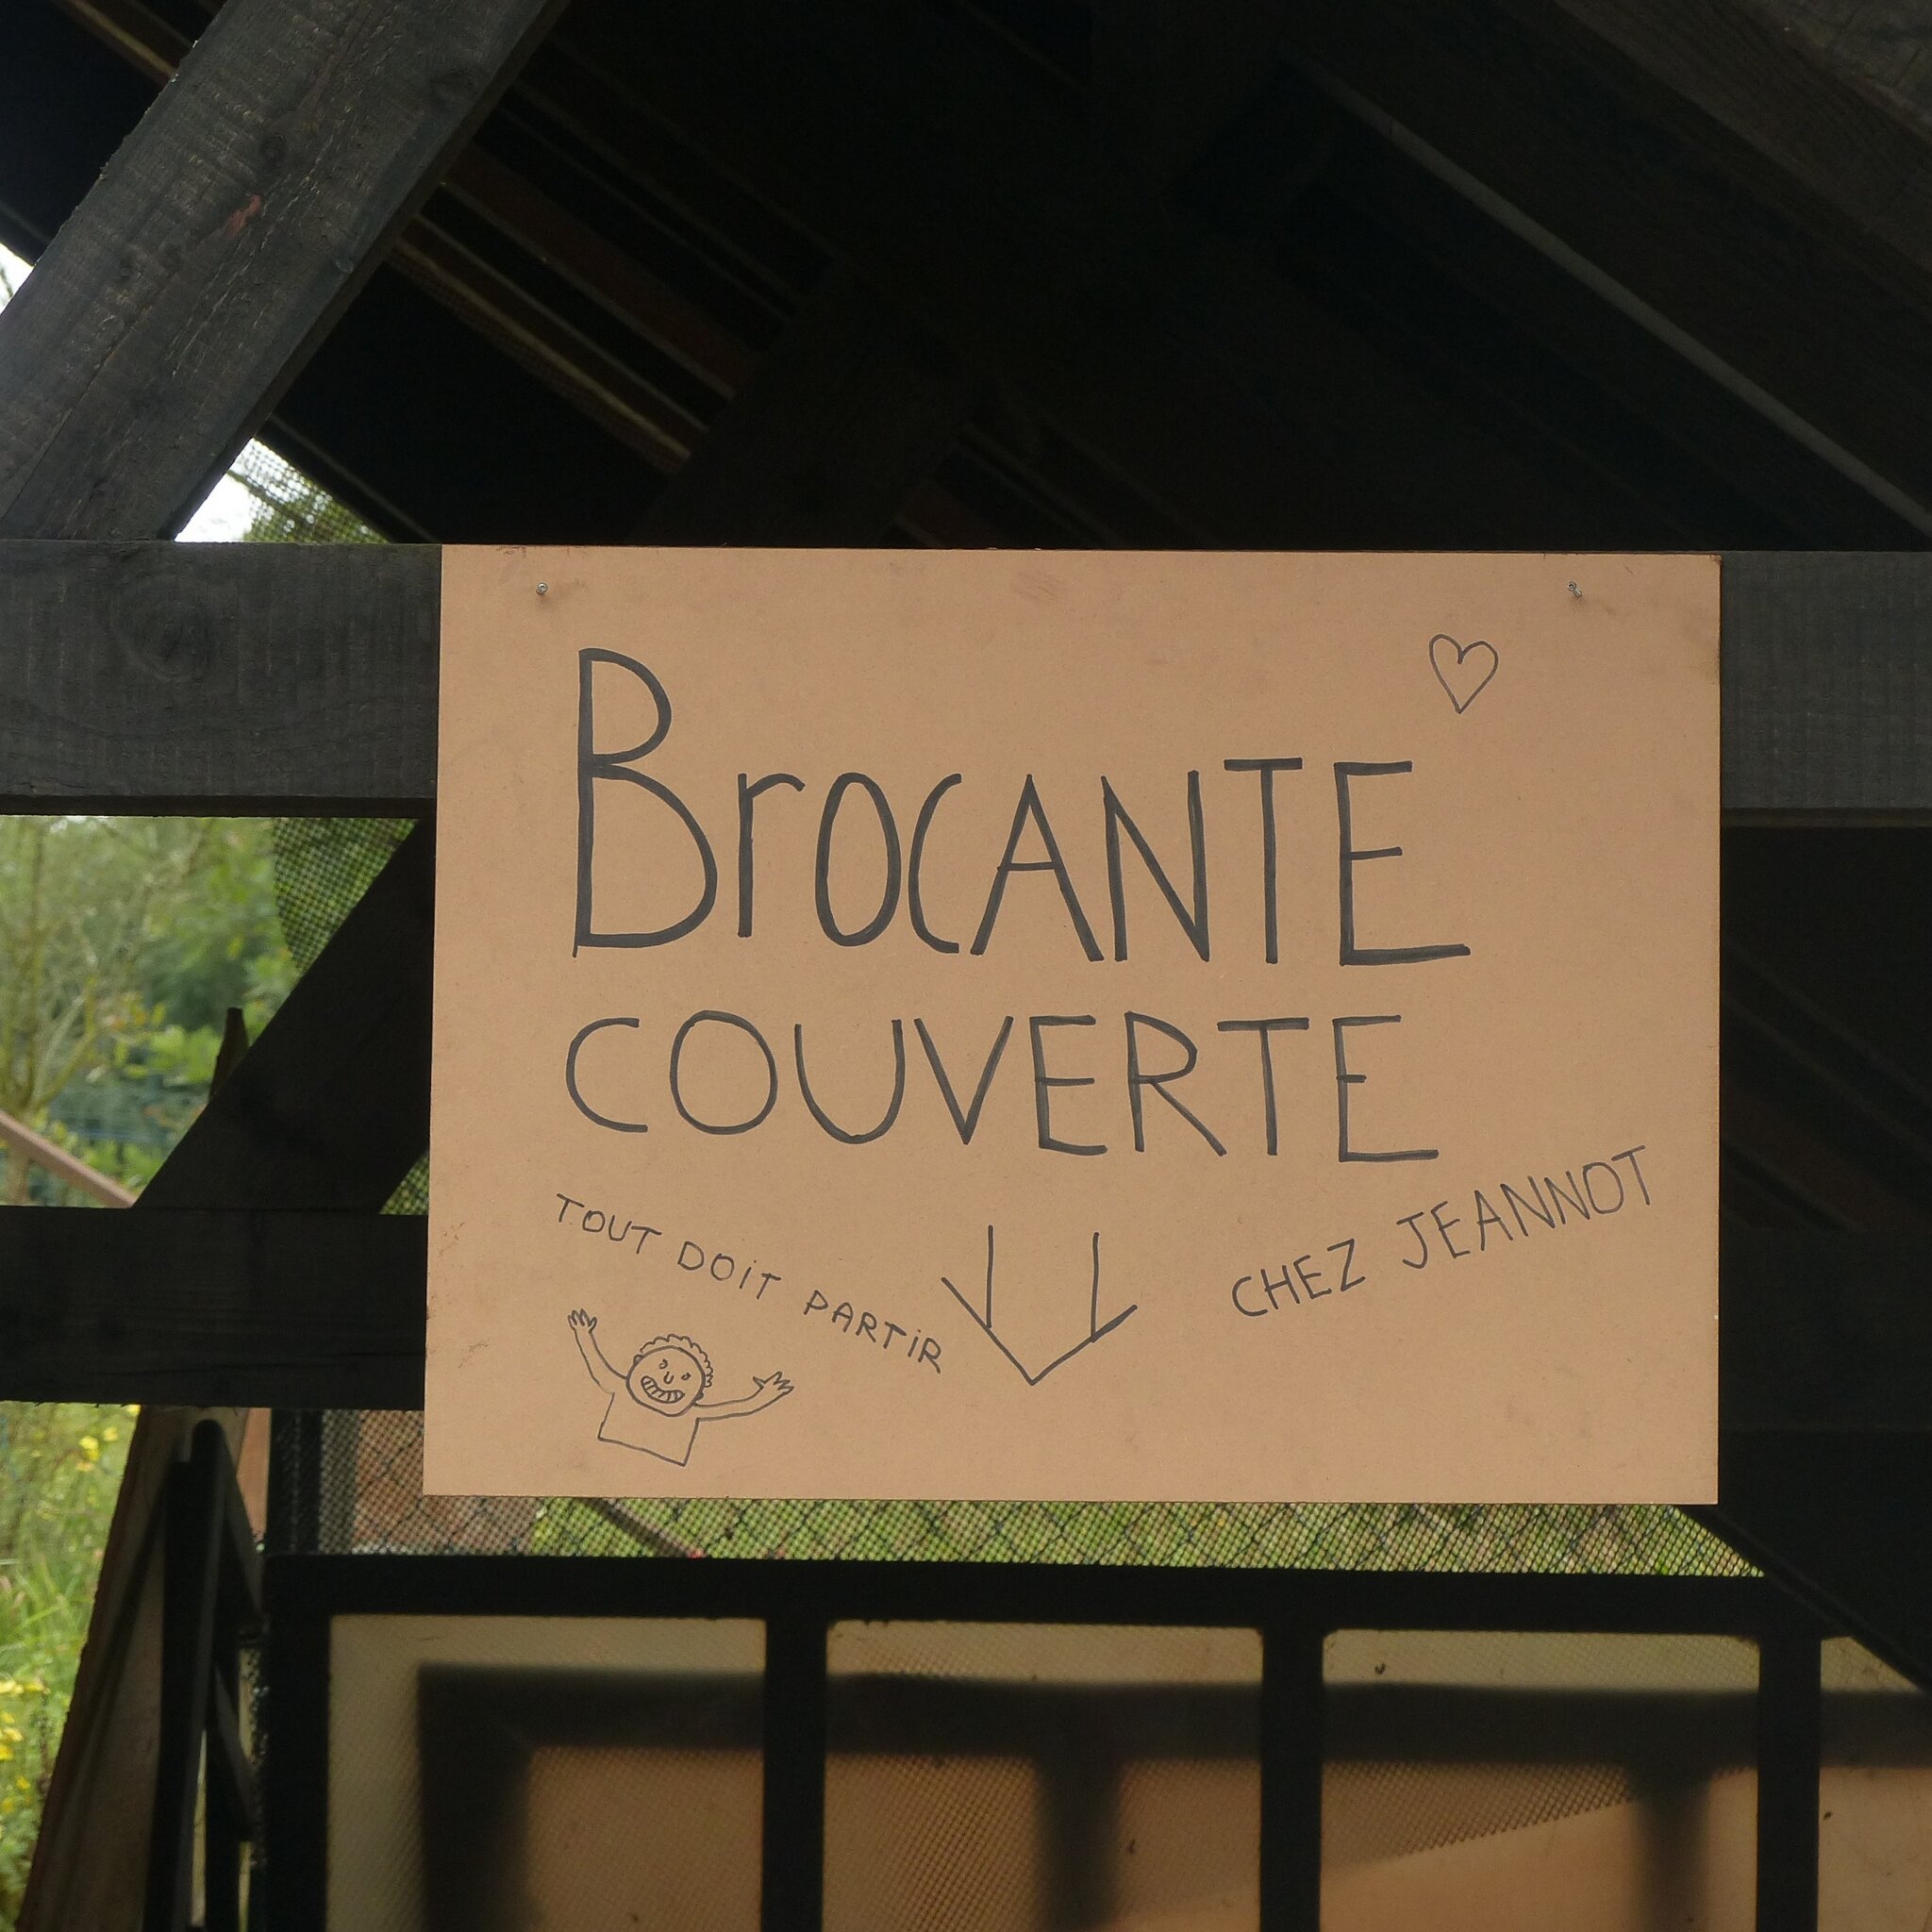 BrOCANTE
COUVERTE
TOUT DOiT PARTiR
CHEZ JEANNOT